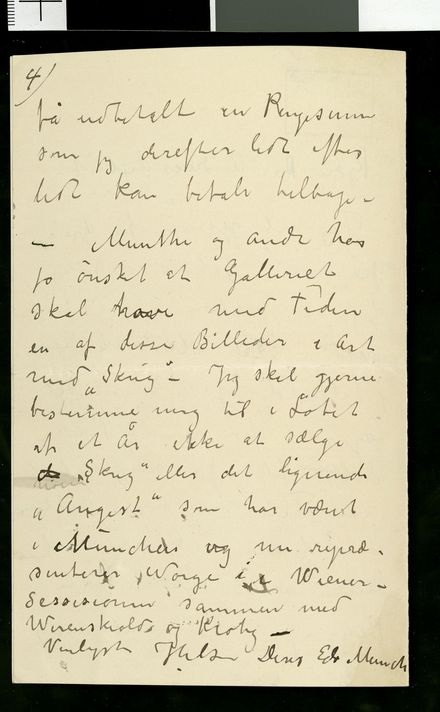 4)
få udbetalt en Pengesum
som jeg derefter lidt efter
lidt kan betale tilbage –
— Munthe og andre har
jo ønsket at Galleriet
skal have med Tiden
en af disse Billeder i Art
med „Skrig“ – Jeg skal gjerne
bestemme mig til i Løbet
af et År ikke at sælge
„Skrig“ eller det lignende
„Angest“ som har været
i München og nu repræ-
senterer Norge i Wiener-
Sessesionen sammen med
Werenskiold og Krohg —
Venligst Hilsen Deres Edv Munch